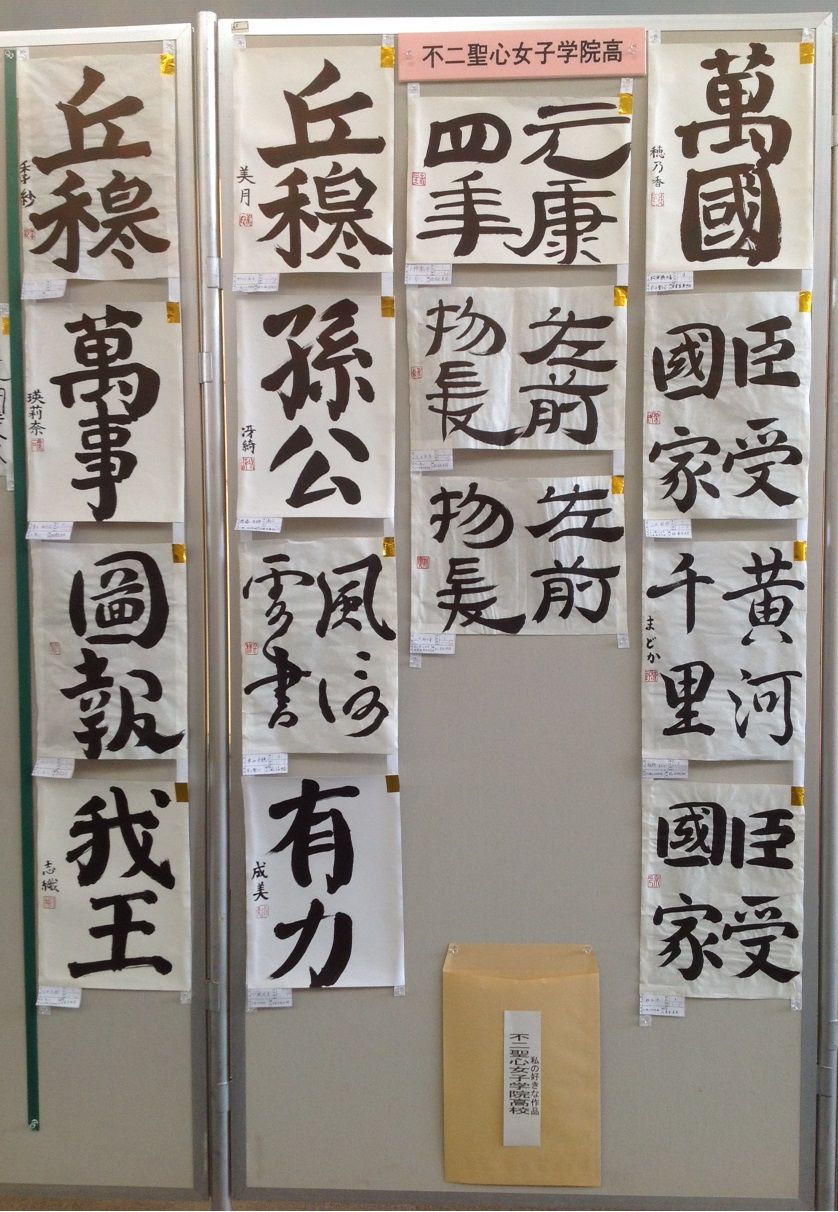 不二聖心女子学院高
萬國
穂乃香
臣受
國家
黄河
千里
まどか
臣受
國家
元康
四年
左前
物長
左前
物長
丘穆
美月
孫公
冴綺
風信
雲書
有力
成美
丘穆
季紗
萬事
瑛莉奈
圖報
我王
志織
私の好きな作品
不二聖心女子学院高校